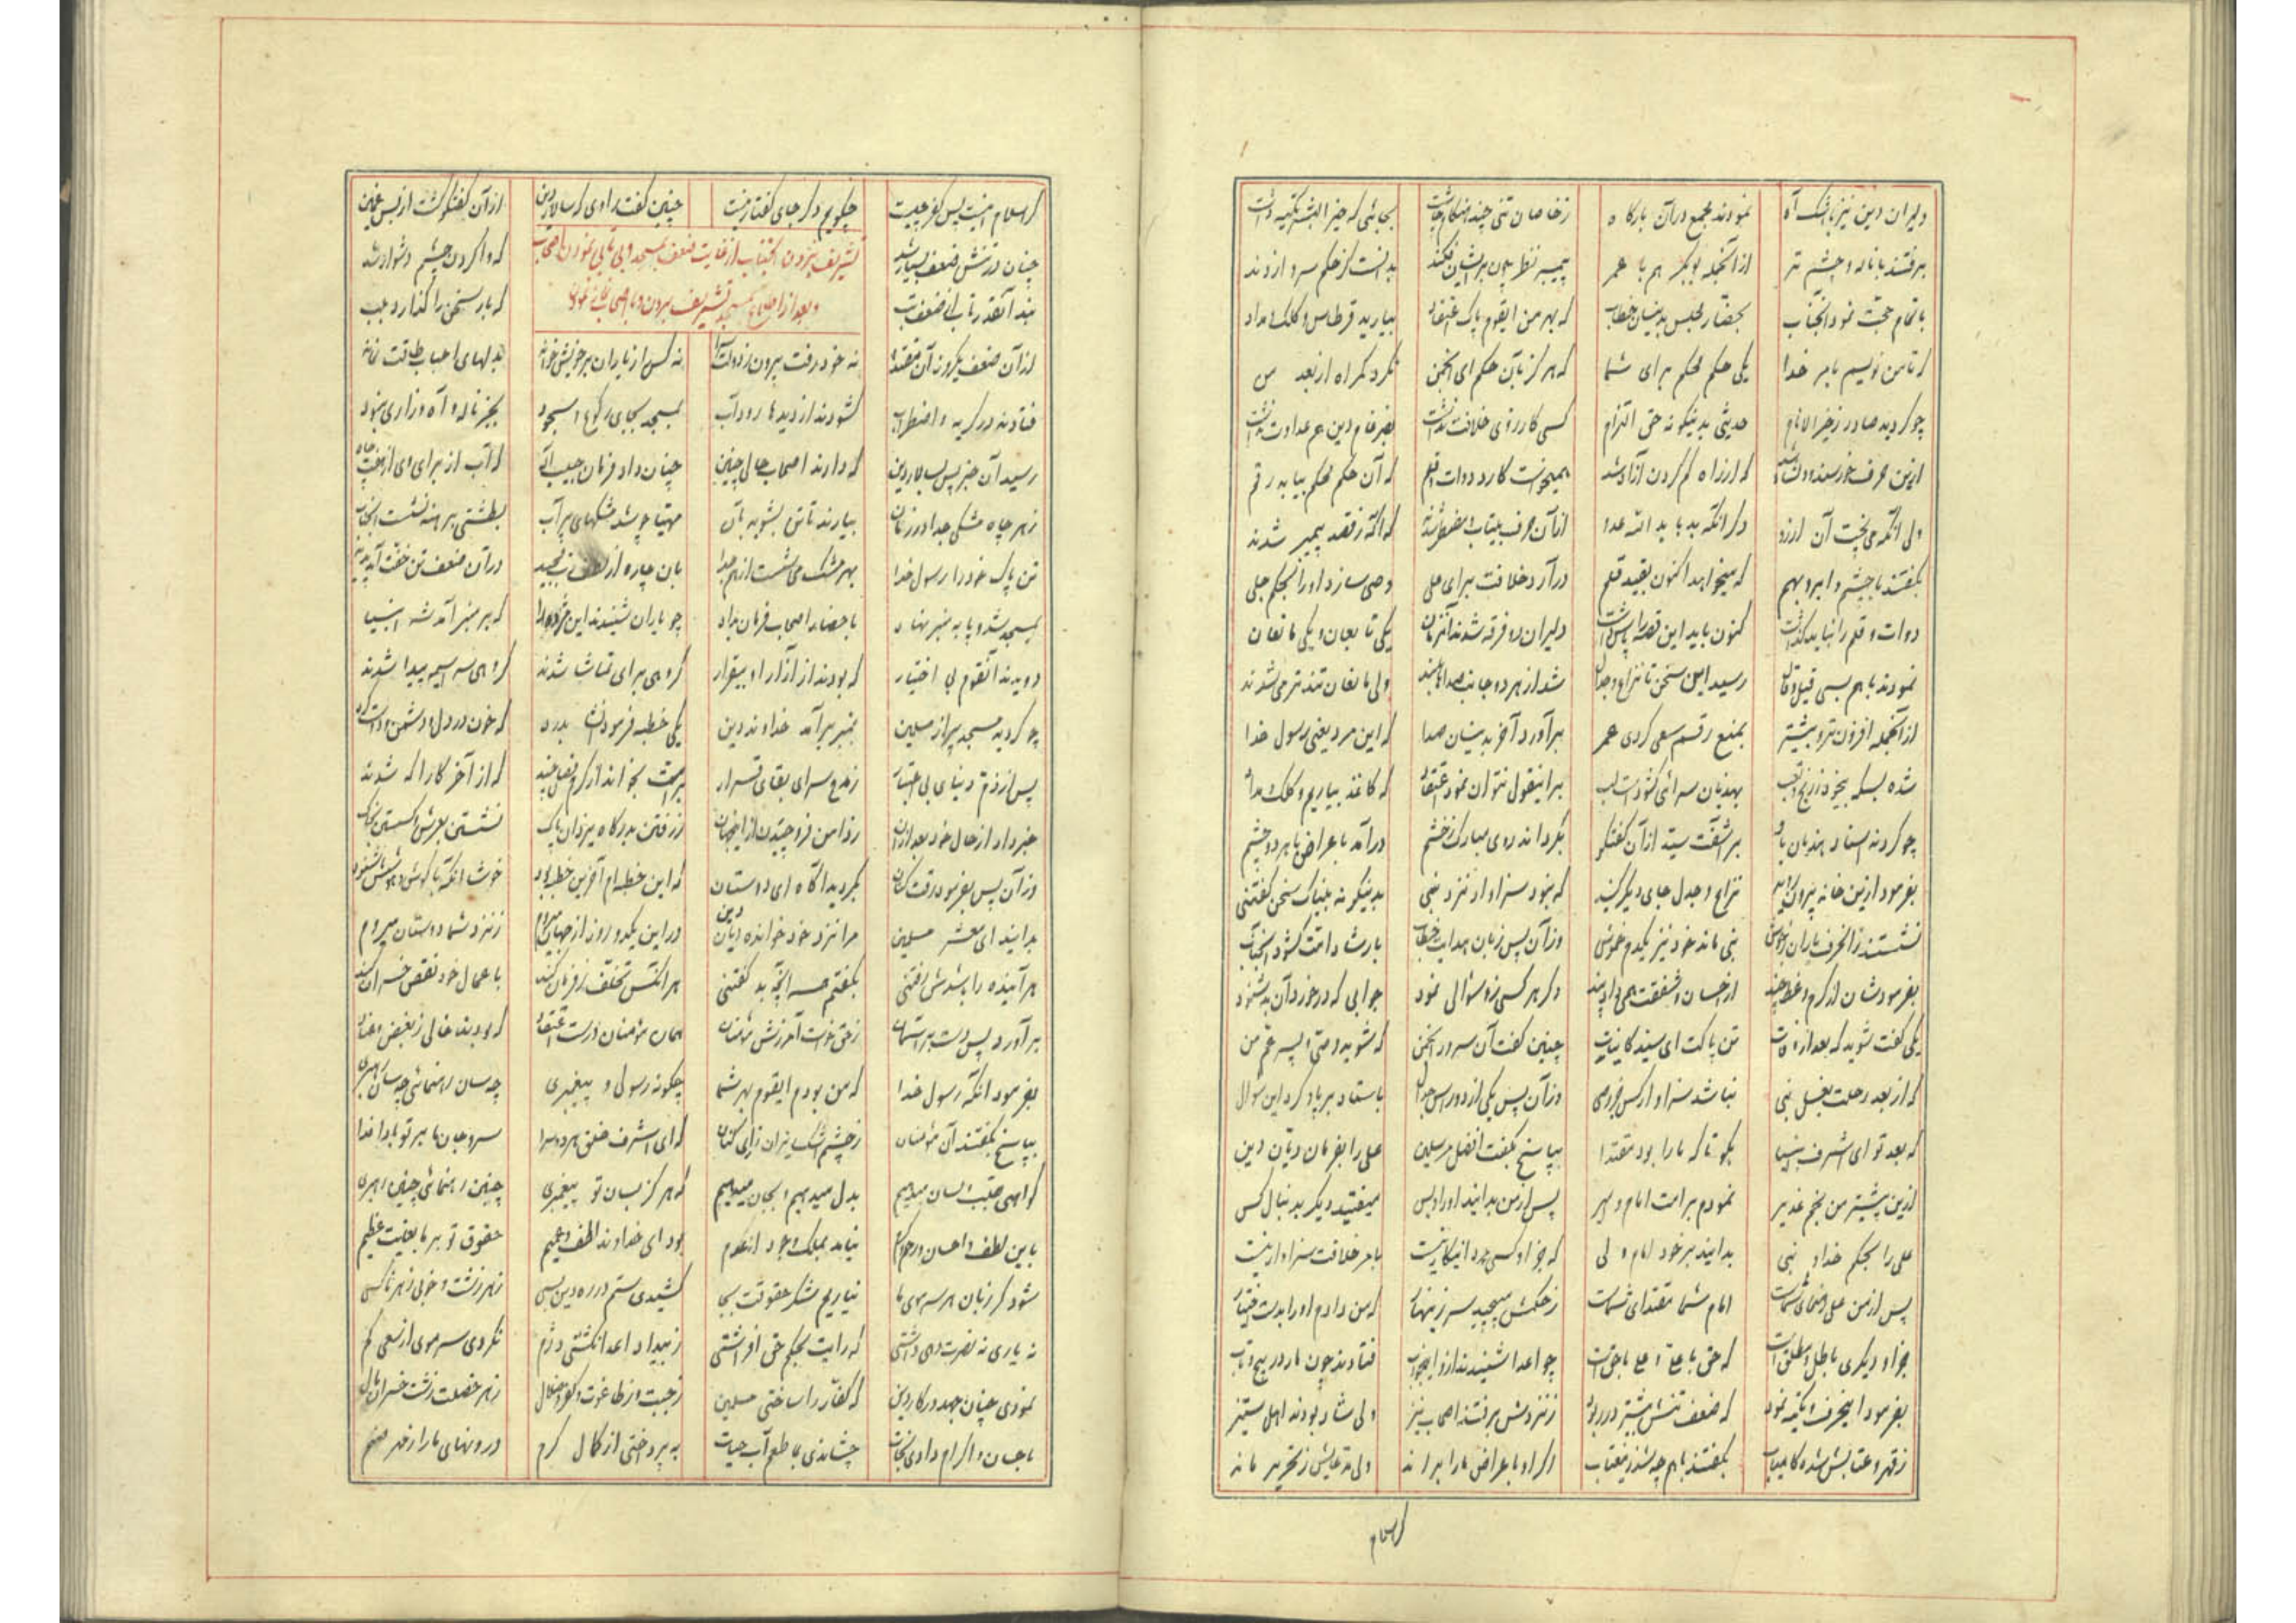 دلیران دین نیز با اشک و آه نمودند مجمع در آن بارگاه ز خاصان تنی چند
برفتند با ناله و چشم تر از آنجمله بوبکر هم با عمر پیمبر نظر چون بریشان فکند بدانست کز حکم سر وازدند
باتمام حجت نمود آنجناب بحضار مجلس بدینسان خطاب که بهر من ایقوم پاک اعتقاد بیارید قرطاس و کلک و مداد
که تا من نویسم بامر خدا یکی حکم محکم برای شما که هرگز بآن حکم ای انجمن نگردید گمراه از بعد من
چو گردید صادر ز خیر الانام حدیثی بدینگونه حق التزام کسی کارزوی خلافت نداشت
ازین حرف خرسند و دلشاد شد که از راه گم کردن آزاد شد همیخواست کارد دوات و قلم که آن حکم محکم بیابد رقم
ولی آنکه می‌پخت آن آرزو از آن حرف بیتاب و مضطر شدند که آگه ز قصد پیمبر شدند
بگفتند با چشم و ابرو بهم که میخواهد اکنون بقید قلم درآرد خلافت برای علی وصی سازد او را بحکم جلی
دوات و قلم را نباید گذاشت کنون باید این قصه را پاس داشت دلیران دو فرقه شدند آنزمان یکی تابعان و یکی مانعان
نمودند با هم بسی قیل و قال رسید این سخن تا نزاع و جدال شد از هر دو جانب صداها بلند ولی مانعان تندتر می‌شدند
از آنجمله افزون‌تر و بیشتر بمنع رقم سعی کردی عمر برآورد آخر بدینسان صدا که این مرد یعنی رسول خدا
شده بسکه بیخود ز رنج و تعب بهذیان سرائی گشودست لب برینقول نتوان نمود اعتقاد که کاغذ بیاریم و کلک و مداد
چو کردند اسناد هذیان باو برآشفت سید از آن گفتگو بگرداند روی مبارک ز خشم درآمد باعراض با هر دو چشم
بفرمود ازین خانه بیرون روید نزاع و جدل جای دیگر کنید که نبود سزاوار نزد نبی بدینگونه بیباک سخن گفتنی
نشستند زانحرف یاران خموش نبی ماند خود نیز یکدم خموش وز آن پس زبان هدایت خطاب بارشاد امت گشود آنجناب
بفرمودشان از کرم وعظ چند از احسان و شفقت همی داد پند دگر هر کسی زو سؤالی نمود جوابی که درخورد آن بد شنود
یکی گفت شوید که بعد از وفات تن پاکت ای سید کاینات چنین گفت آن سرور انجمن که شوید وصی و پسر عم من
که از بعد رحلت بغسل نبی نباشد سزاوار کس جز وصی وز آن پس یکی باستاد بر پا و کرد این سؤال
که بعد تو ای اشرف انبیا بگو تا که ما را بود مقتدا بپاسخ بگفت افضل مرسلین علی را بفرمان دیان دین
ازین پیشتر من بخم غدیر نمودم بر امت امام و امیر پس از من بدانید او را و بس میفتید دیگر بدنبال کس
علی را بحکم خدا و نبی بدانید بر خود امام و ولی که جز او کسی مرد اینکار نیست بامر خلافت سزاوار نیست
پس از من علی رهنمای شماست امام شما مقتدای شماست ز حکمش مپیچید سر زینهار که من دادم او را بدست اختیار
جز او دیگری باطل مطلق است که حق با علی و علی با حق است چو اعدا شنیدند از و این جواب فتادند چون مار در پیچ و تاب
بفرمود اینحرف و تکیه نمود که ضعف تنش بیشتر رو نمود ز نزدش برفتند اصحاب نیز ولی شاد بودند اهل ستیز
ز قهر و عتابش شده کامیاب بگفتند با هم چه شد زین عتاب اگر او باعراض ما را براند ولی مدعایش ز تحریر ماند
کر اسلام
کر اسلام اینست پس کفر چیست چگویم دگر جای گفتار نیست چنین گفت راوی که سالار دین از آن گفتگو گشت از بس غمین
چنان در تنش ضعف بسیار شد که وا کردن چشم دشوار شد
تشریف بردن آنجناب از غایت ضعف بمسجد و بی تابی نمودن اصحاب
نبد آنقدر تاب از ضعف تب که بار سخن را گذارد بلب
و بعد از اطلاع بمسجد تشریف بردن
از آن ضعف یکروز آن مقتدا نه خود رفت بیرون ز دولت سرا نه کس از یاران بر خویش خواند بدلهای احباب طاقت نماند
فتادند در گریه و اضطراب گشودند از دیده‌ها رود آب بمسجد بجای رکوع و سجود بجز ناله و آه و زاری نبود
رسید آن خبر پس بسالار دین که دارند اصحاب حالی چنین چنان داد فرمان حبیب اله که آب از برای وی از هفت چاه
ز هر چاه مشکی جدا در زمان بیارند تا تن بشوید بآن مهیا چو شد مشکهای پر آب بطشتی برهنه نشست آنجناب
تن پاک خود را رسول خدا بهر مشک می‌شست از هم جدا
بمسجد شد و پا به منبر نهاد باحضار اصحاب فرمان بداد چو یاران شنیدند این مژده را که بر منبر آمد شه انبیا
دویدند آنقوم بی اختیار که بودند از آزار او بیقرار گروهی برای تماشا شدند گروهی سراسیمه پیدا شدند
چو گردید مسجد پر از مسلمین بمنبر برآمد خداوند دین یکی خطبه فرمود آن شه به درد که خون در دل دشمن و دوست کرد
پس از ذم دنیای بی اعتبار ز مدح سرای بقای قرار
خبر داد از حال خود بعد از آن ز رفتن بدرگاه یزدان پاک
وز آن پس بفرمود رقت کنان بگردید آگاه ای دوستان که این خطبه‌ام آخرین خطبه بود خوشا آنکه با گوش و هوشش شنود
بدانید ای معشر مسلمین مرا نزد خود خوانده دیان دین در این یکدو روز از جهان میروم ز نزد شما دوستان میروم
هر آینده را باشدش رفتنی بگفتم هر آنچه بد گفتنی هر آنکس تخلف ز فرمان کند با عمال خود نقص خسران کند
برآورد پس دست بر آسمان ز حق خواست آمرزش مؤمنان همان مؤمنان درست اعتقاد که بودند خالی ز بغض و عناد
بفرمود آنگه رسول خدا که من بودم ایقوم بهر شما چگونه رسولی و پیغمبری چه سان رهنمائی چه سان رهبری
بپاسخ بگفتند آن مؤمنان ز چشم اشک ریزان و زاری کنان که ای اشرف خلق هر دو سرا سر و جان ما بر تو بادا فدا
گواهی بقلب و لسان میدهیم بدل میدهیم و بجان میدهیم که هرگز بسان تو پیغمبری چنین رهنمائی چنین رهبری
باین لطف و احسان و رحم و کرم نیامد بملک وجود از عدم بود ای خداوند لطف عمیم حقوق تو بر ما بغایت عظیم
شود گر زبان هر سر موی ما نیاریم شکر حقوقت بجا کشیدی ستم در ره دین بسی ز هر زشت و خوبی ز هر ناکسی
نه یاری نه نصرت دهی داشتی که رایت بحکم حق افراشتی ز بیداد اعدا نگشتی دژم نکردی سر موی از سعی کم
نمودی چنان جهد در کار دین که کفار را ساختی مسلمین ز جبت و ز طاغوت و کفر و ضلال
باحسان و اکرام دادی نجات چشاندی بما طعم آب حیات بپرداختی از کمال کرم درونهای ما را